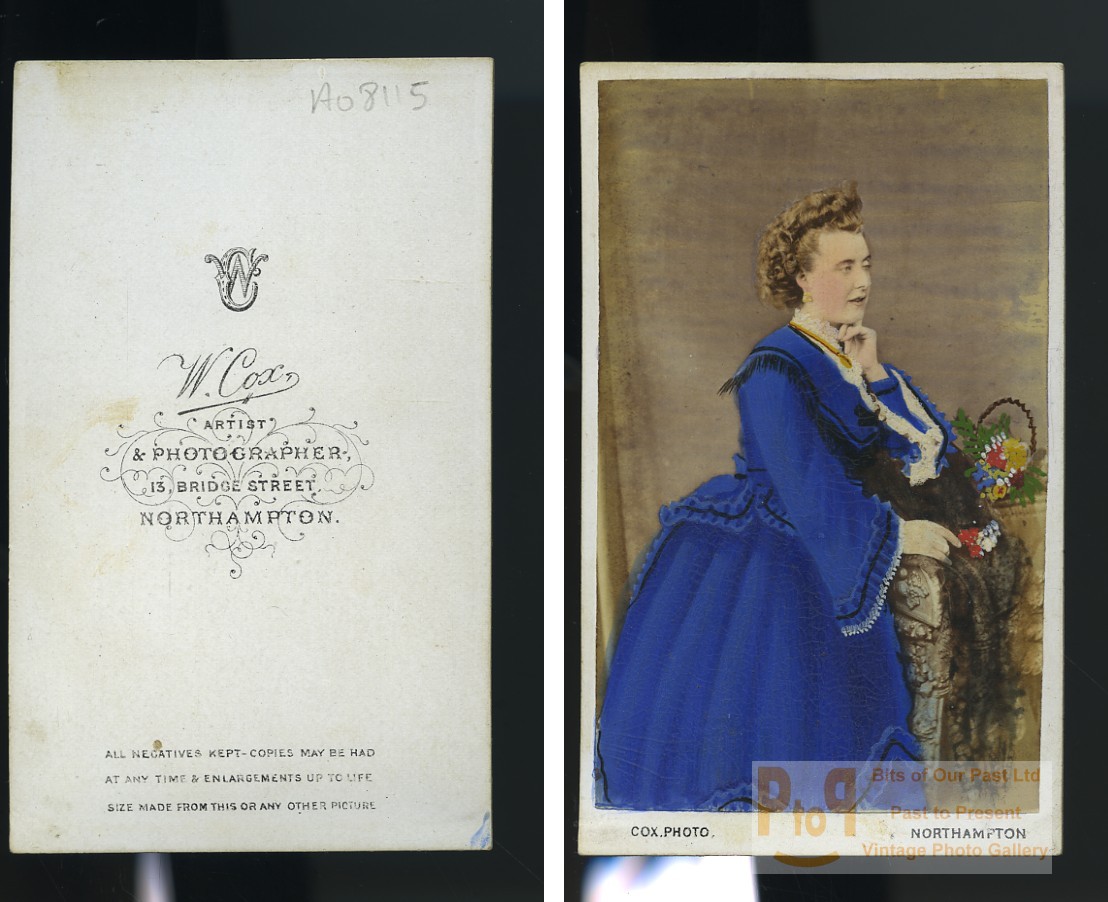 A08115
WC
W. Cox,
ARTIST
& PHOTOGRAPHER,
13, BRIDGE STREET,
NORTHAMPTON.
ALL NEGATIVES KEPT-COPIES MAY BE HAD
AT ANY TIME & ENLARGEMENTS UP TO LIFE
SIZE MADE FROM THIS OR ANY OTHER PICTURE
COX. PHOTO.
NORTHAMPTON
PtoP
Bits of Our Past Ltd
Past to Present
Vintage Photo Gallery